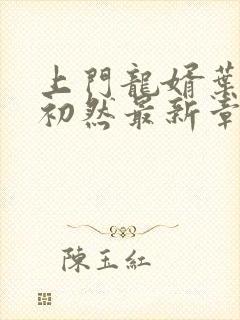 上門龍婿葉
初然最新章
陳玉紅